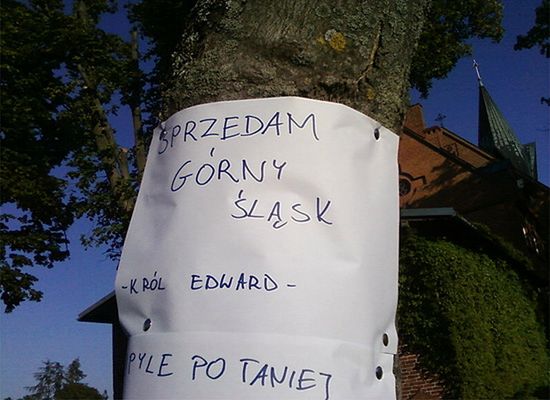 SPRZEDAM
GÓRNY
ŚLĄSK
- KRÓL EDWARD -
PYLE PO TANIEJ